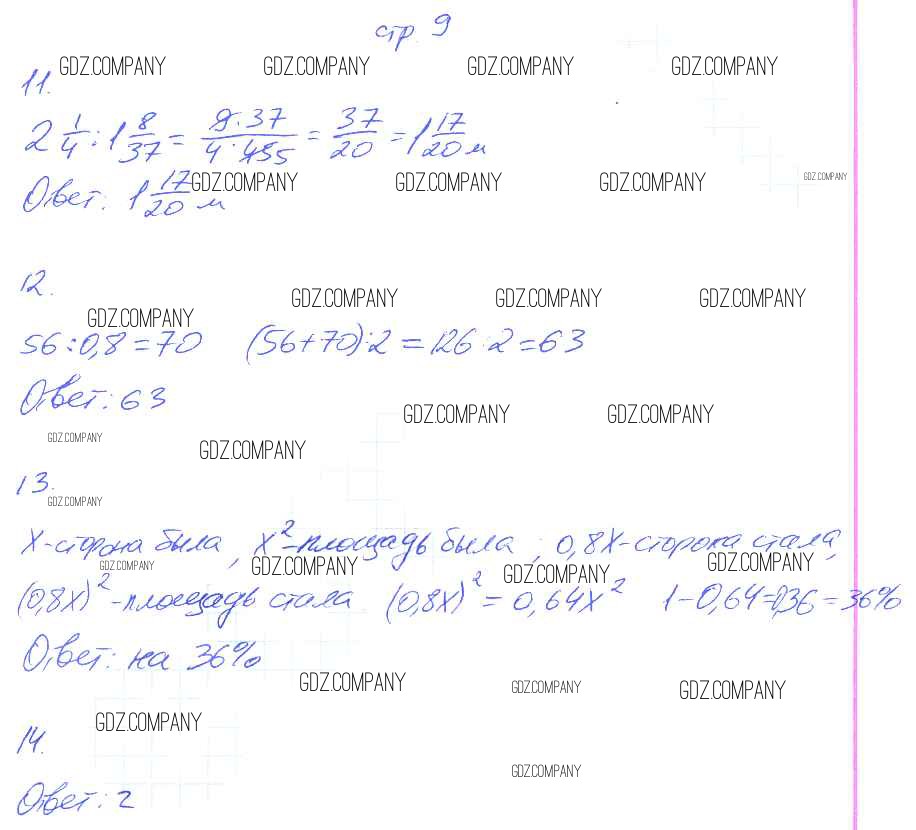 стр. 9
GDZ.COMPANY GDZ.COMPANY GDZ.COMPANY GDZ.COMPANY
11.
2 1/4 : 1 8/37 = 9·37/4·455 = 37/20 = 1 17/20 м
GDZ.COMPANY GDZ.COMPANY GDZ.COMPANY GDZ.COMPANY
Ответ: 1 17/20 м
12.
GDZ.COMPANY GDZ.COMPANY GDZ.COMPANY
GDZ.COMPANY
56:0,8=70 (56+70):2=126:2=63
Ответ: 63
GDZ.COMPANY GDZ.COMPANY
GDZ.COMPANY GDZ.COMPANY
13.
GDZ.COMPANY
х-сторона была, х²-площадь была; 0,8х-сторона стала,
GDZ.COMPANY GDZ.COMPANY GDZ.COMPANY GDZ.COMPANY
(0,8х)²-площадь стала (0,8х)² = 0,64х² 1-0,64=0,36=36%
Ответ: на 36%
GDZ.COMPANY GDZ.COMPANY GDZ.COMPANY
GDZ.COMPANY
14.
GDZ.COMPANY
Ответ: 2